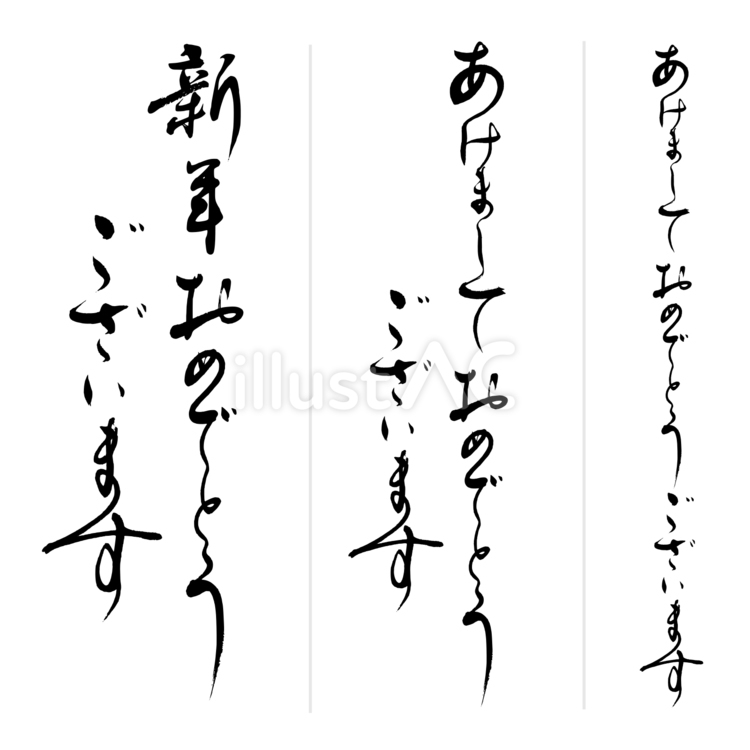 新年おめでとう
ございます
あけましておめでとう
ございます
あけましておめでとうございます
illustAC